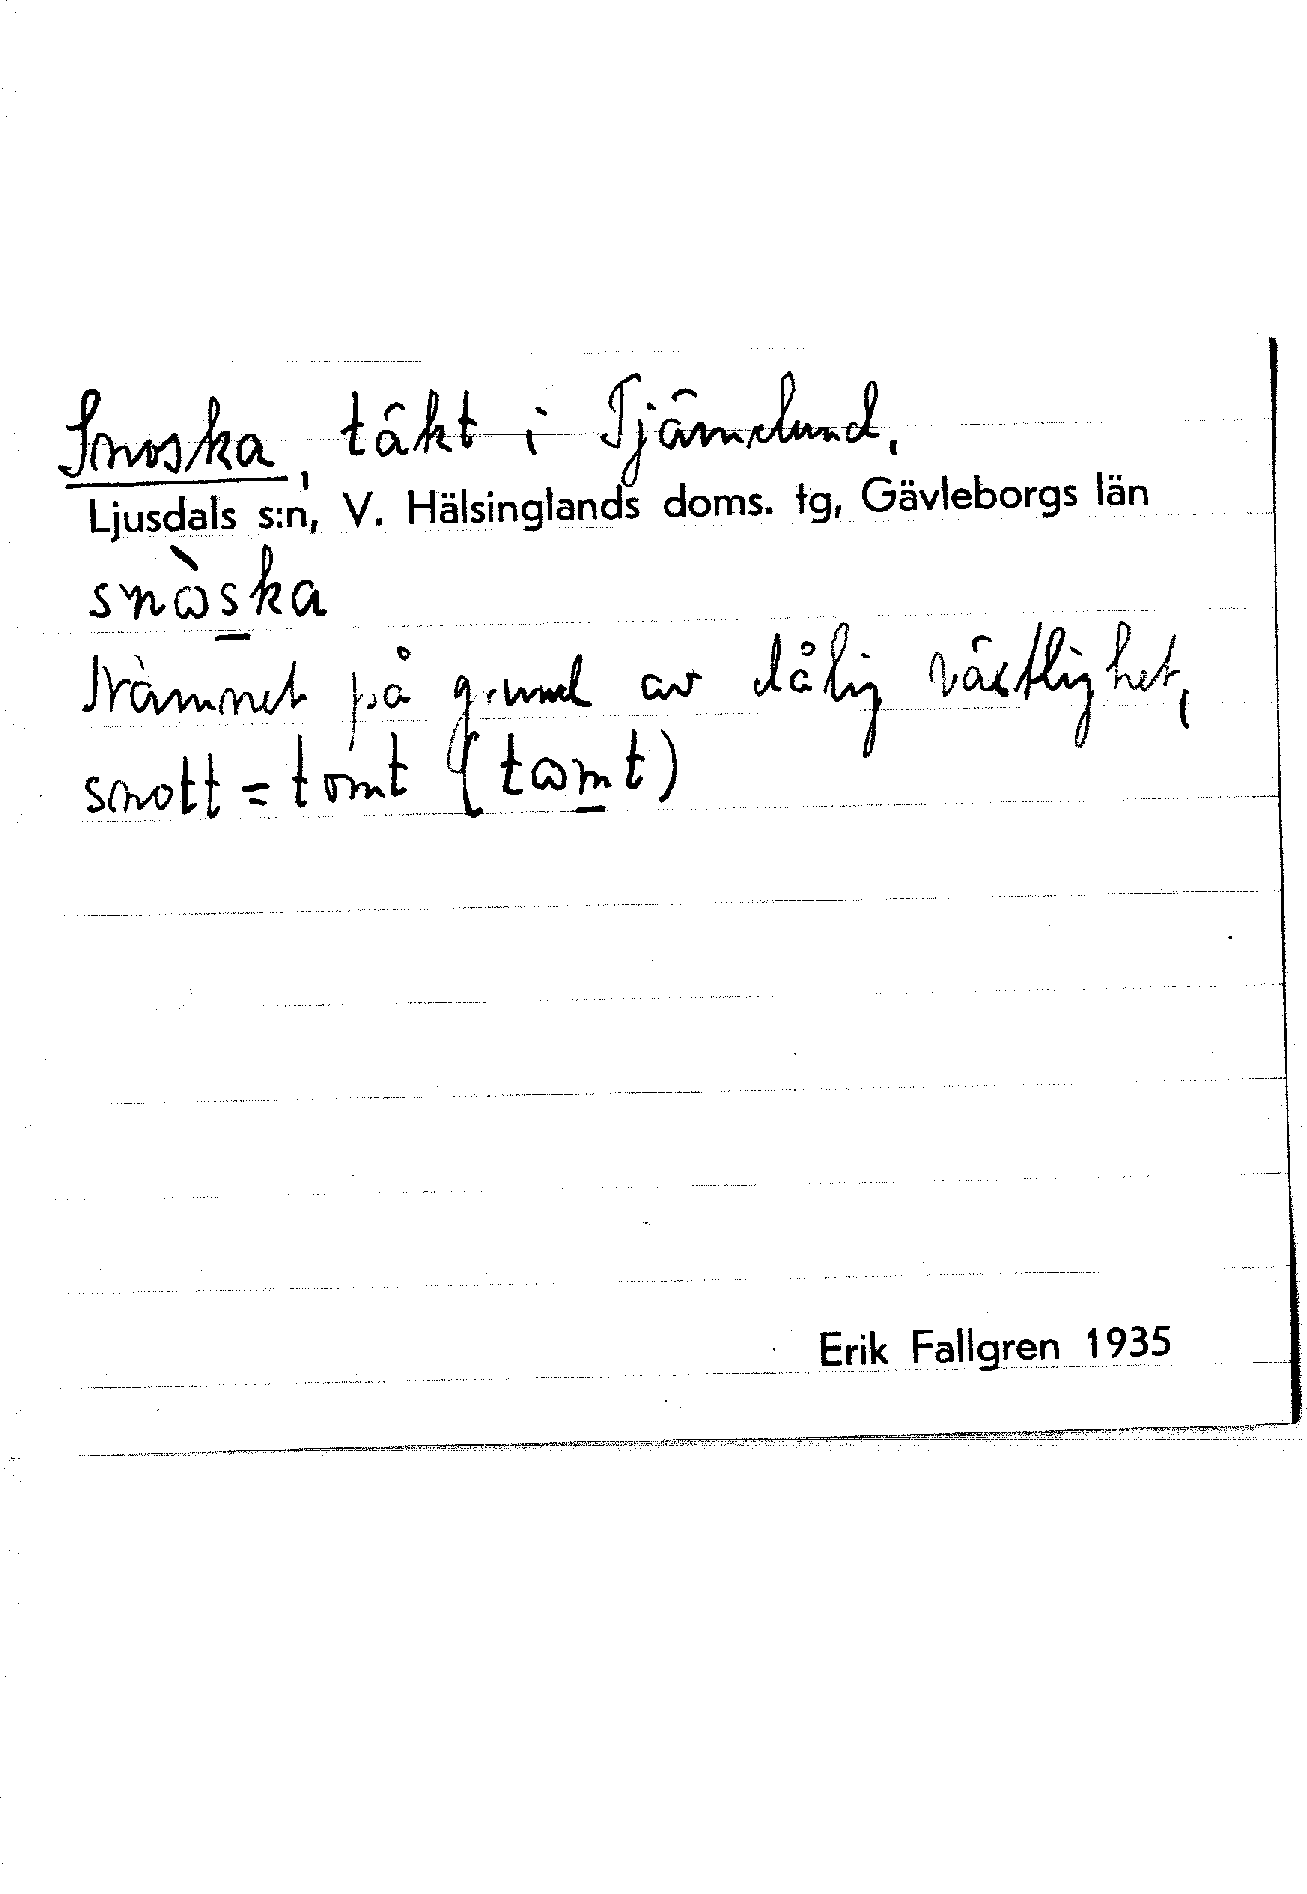 Snoska, täkt i Tjärnslund,
Ljusdals s:n, V. Hälsinglands doms. tg, Gävleborgs län
snɷ̀ska
Namnet på grund av dålig växtlighet,
snott = tomt (tɷmt)
Erik Fallgren 1935